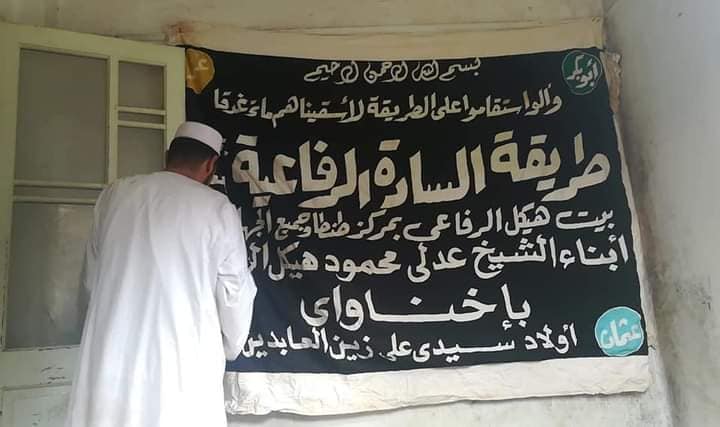 بسم الله الرحمن الرحيم
أبو بكر
وألوا ستقاموا على الطريقة لأسقيناهم ماء غدقا
طريقة السادة الرفاعية
بيت هيكل الرفاعى بمركز طنطا وجميع
أبناء الشيخ عدلى محمود هيكل
بإخناواى
عثمان
أولاد سيدى على زين العابدين